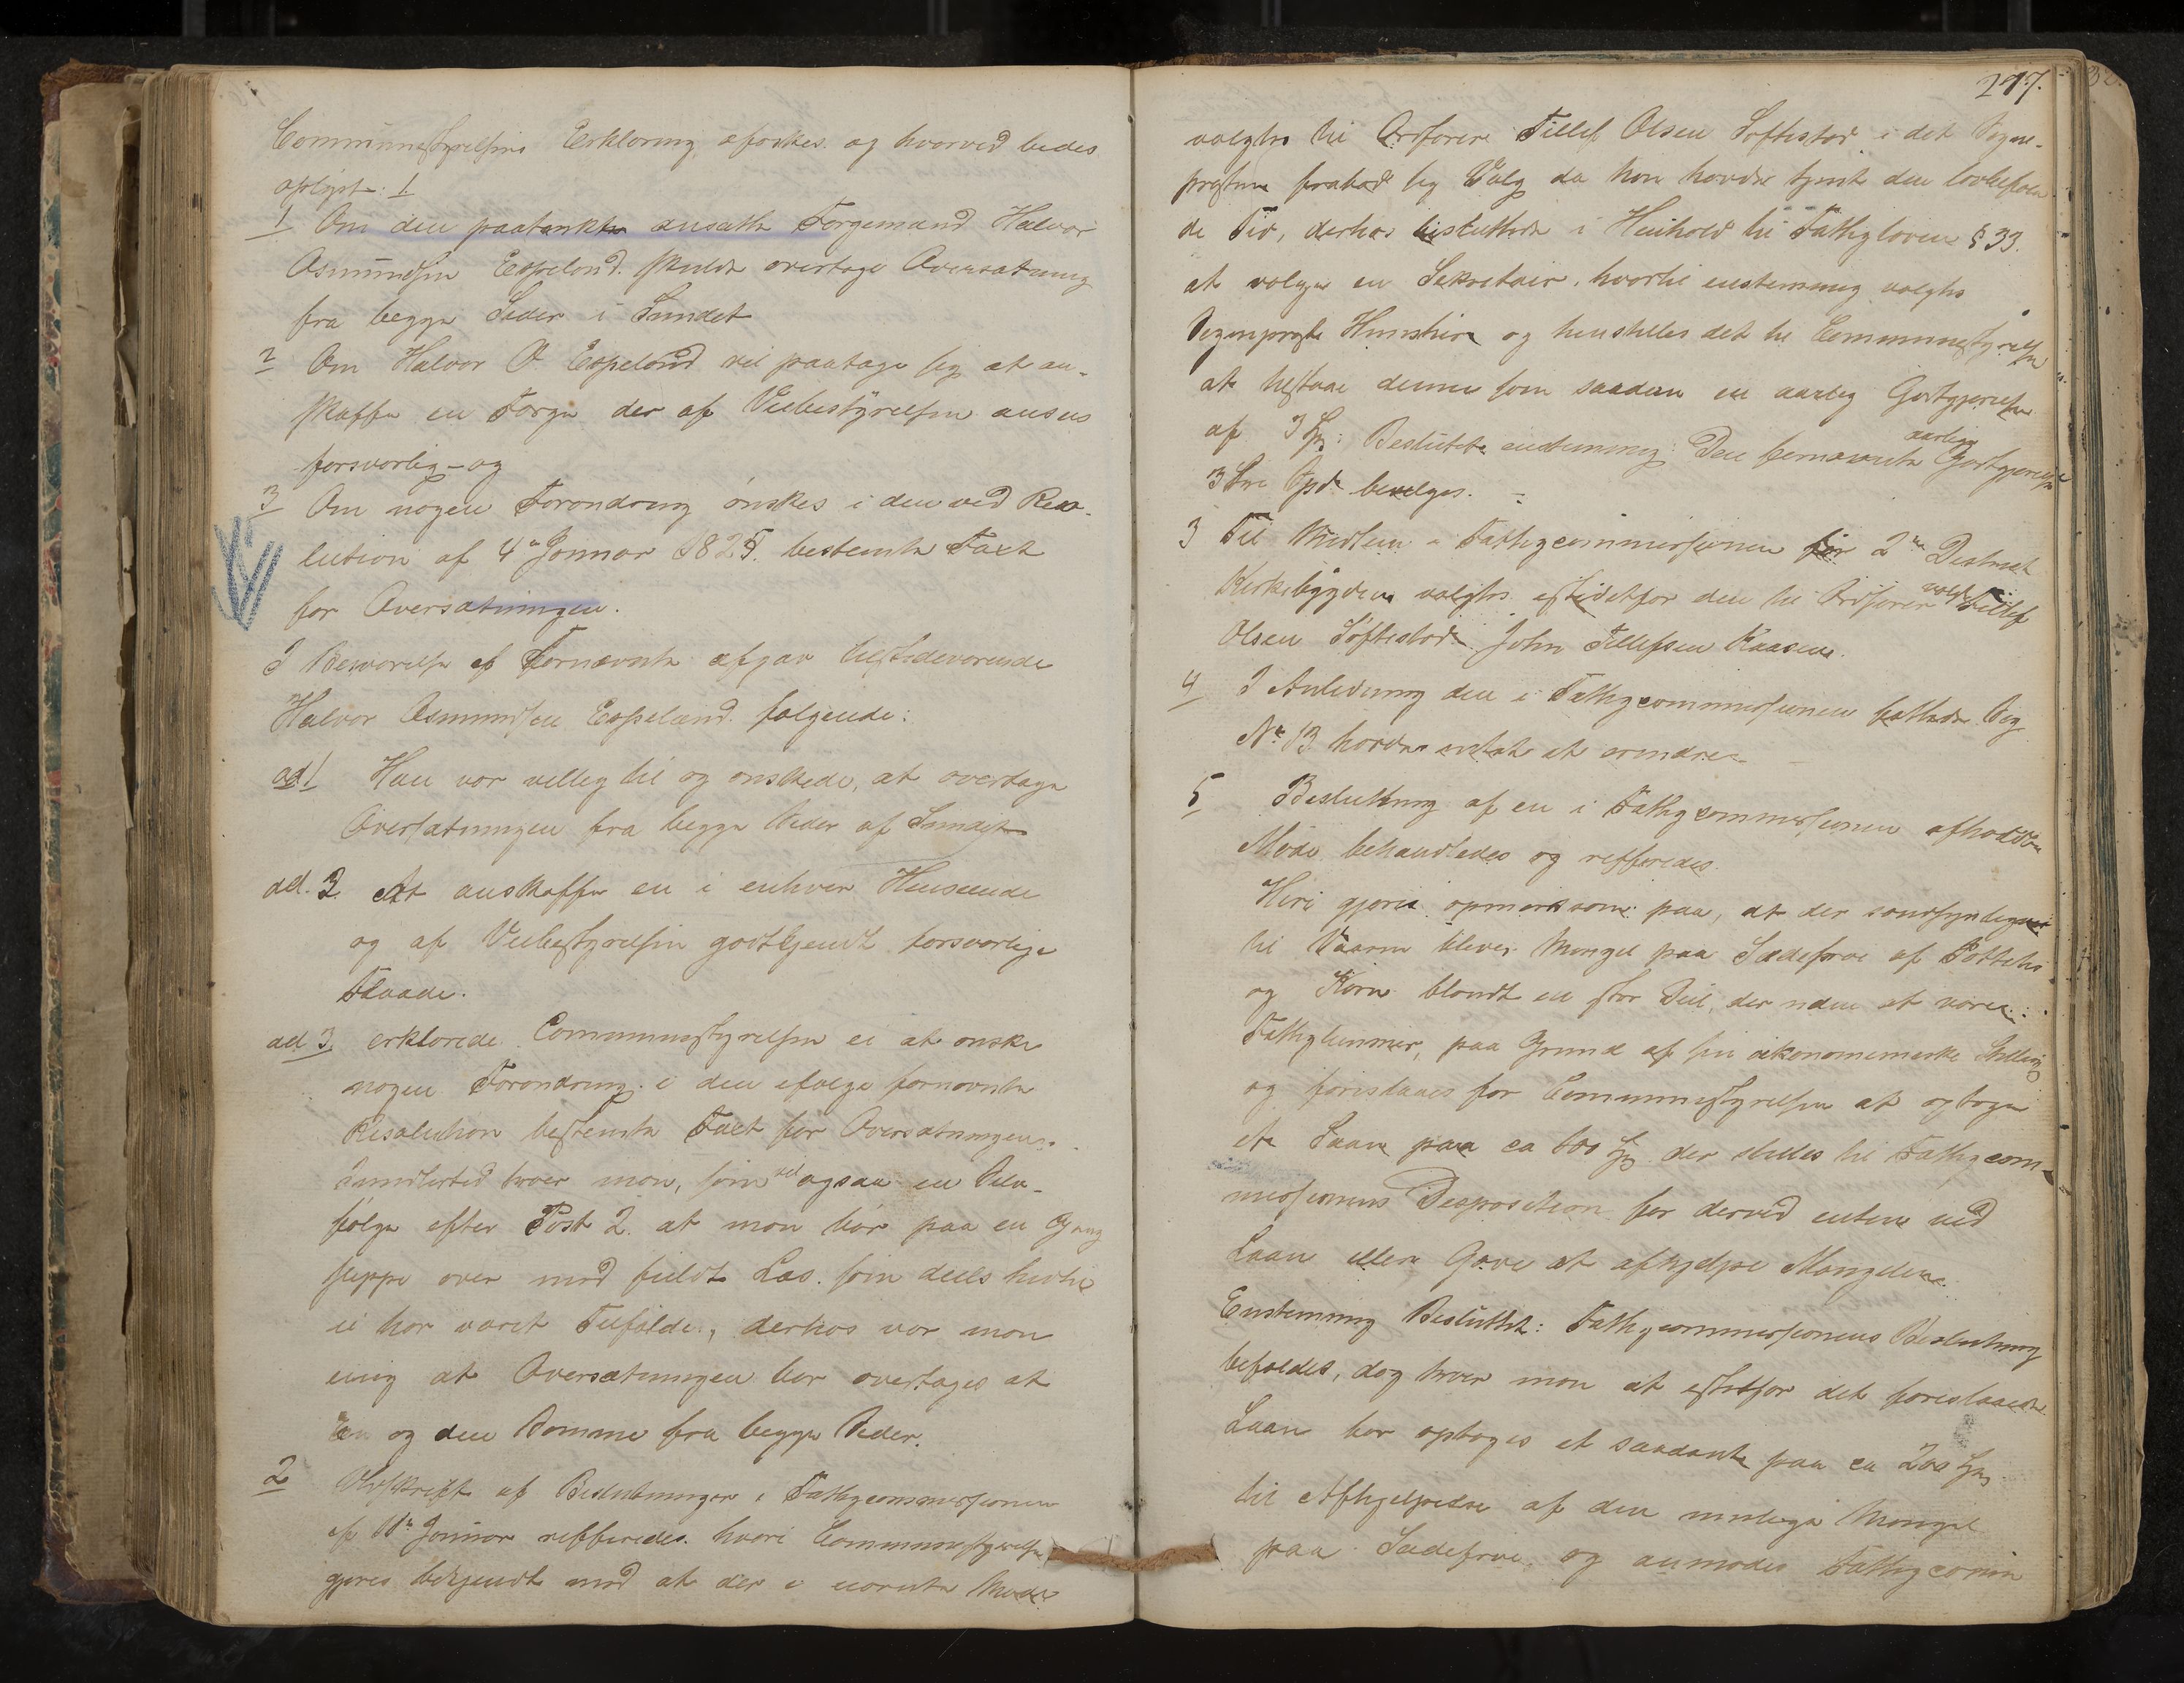 Communestyrelsens Erklæring æfæskes og hvorved bedes
oplyst: 1
1 Om den paatænkte ansatte Færgemand Halvor
Asmundsen Espeland skulde overtage Oversætning
fra begge Sider i Sundet
2 Om Halvor A Espeland vil paatage sig at an-
skaffe en Færge der af Veibestyrelsen ansees
forsvarlig - og
3 Om nogen Forandring ønskes i den ved Reso-
lution af 4de Januar 1825. bestemte Taxt
for Oversætningen.
I Besvarelse af Fornævnte afgav tilstedeværende
Halvor Asmundsen Espeland følgende:
ad 1 Han var villig til og ønskede, at overtage
Oversætningen fra begge Sider af Sundet
ad. 2 At anskaffe en i enhver Henseende
og af Veibestyrelsen godkjendt forsvarlige
Flaade.
ad 3 erklærede Communestyrelsen ei at ønske
nogen Forandring i den ifølge fornævnte
Resolution bestemte Taxt for Oversætningen.
Imidlertid troer man, som vel ogsaa en Selv-
følge efter Post 2 at man bør paa en Gang
slippe over med fuldt Læs. som deels hidtil
ei har været Tilfælde, derhos var man
enig at Oversætningen bør overtages at
en og den Samme fra begge Sider.
2 Udskrift af Beslutninger i Fattigcommissionen
af 11te Januar refferedes. hvori Communestyrelsen
gjøres bekjendt med at der i nævnte Møde
277.
valgtes til Ordfører Tellef Olsen Løftestad i det Sogne-
presten frabad sig Valg da han havde tjent den lovbefalen
de Tid, derhos besluttede i Henhold til Fattigloven § 33.
at vælge en Sekretair, hvortil enstemmig valgtes
Sogneprest og henstilles det til Communestyrelsen
at tilstaae denne som saadan en aarlig Godtgjørelse
af 3 Spd: Besluttet enstemmig: Den bemævnte aarlige Godtgjørelse
3 tre Spd. bevilges. -
3 Til Medlem i Fattigcommissionen for 2det District
Kirkebygden valgtes istedetfor den til Ordfører valgte Tellef
Olsen Løftestad John Tellefsen Kaasene.
4 I Anledning den i Fattigcommissionen fattede
No 13 havdes intet at erindre -
5 Beslutning af en i Fattigcommissionen afholdt
Møde behandledes og refferedes.
Heri gjøres opmærksom paa, at der sandsynligvis
til Vaaren bliver Mangel paa Sædefrøe af Potetes
og Korn blandt en stor Deel, der uden at være
Fattiglemmer, paa Grund af sin økonomiske Stilling
og foreslaaes for Communestyrelsen at optage
et Laan paa ca 600 Spd der stilles til Fattigcom-
missionens Disposition for derved enten ved
Laan eller Gave at afhjelpe Mangelen.
Enstemmig Besluttet: Fattigcommissionens Beslutning
bifaldes, dog troer man at istedfor det foreslaaede
Laan bør optages et saadant paa ca 200 Spd
til Afhjelpelse af den mulige Mangel
paa Sædefrøe. og anmodes Fattigcomm